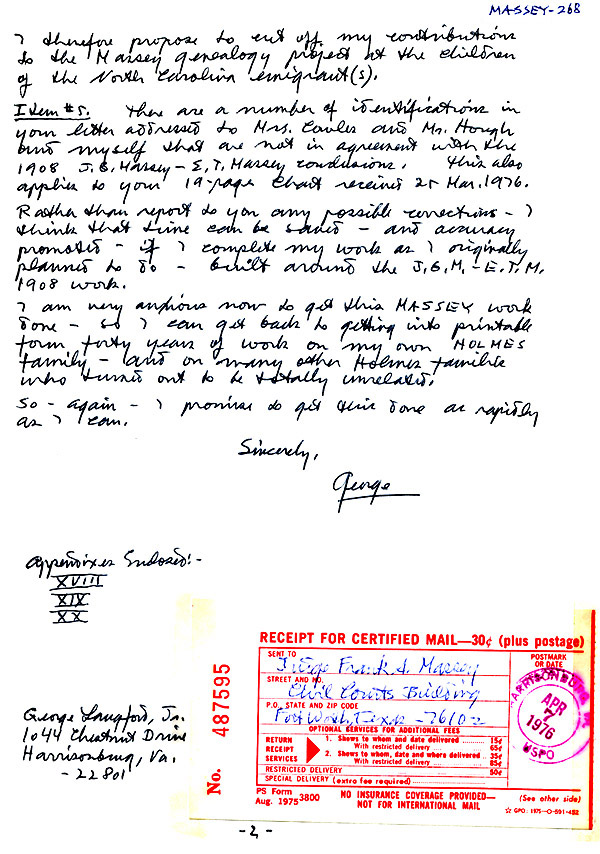 MASSEY-268
I therefore propose to cut off my contributions
to the Massey genealogy project at the children
of the North Carolina emigrant(s).
Item #5. There are a number of identifications in
your letter addressed to Mrs. Cowles and Mr. Hough
and myself that are not in agreement with the
1908 J.B. Massey - E.T. Massey conclusions. This also
applies to your 19-page Chart received 25 Mar. 1976.
Rather than report to you any possible corrections - I
think that time can be saved - and accuracy
promoted - if I complete my work as I originally
planned to do - built around the J.B.M. - E.T.M.
1908 work.
I am very anxious now to get this MASSEY work
done - so I can get back to getting into printable
form forty years of work on my own HOLMES
family - and on many other Holmes families
who turned out to be totally unrelated.
So - again - I promise to get this done as rapidly
as I can.
Sincerely,
George
Appendixes Enclosed:-
XVIII
XIX
XX
George Langford, Jr.
1044 Chestnut Drive
Harrisonburg, Va.
- 22801
No. 487595
RECEIPT FOR CERTIFIED MAIL—30¢ (plus postage)
SENT TO
Judge Frank S. Massey
STREET AND NO.
Civil Courts Building
P.O. STATE AND ZIP CODE
Fort Worth, Texas - 76102
POSTMARK
OR DATE
HARRISONBURG VA.
APR
7
1976
USPO
OPTIONAL SERVICES FOR ADDITIONAL FEES
RETURN
RECEIPT
SERVICES
1. Shows to whom and date delivered 15¢
With restricted delivery 65¢
2. Shows to whom, date and where delivered 35¢
With restricted delivery 85¢
RESTRICTED DELIVERY 50¢
SPECIAL DELIVERY (extra fee required)
PS Form
Aug. 1975 3800
NO INSURANCE COVERAGE PROVIDED—
NOT FOR INTERNATIONAL MAIL
(See other side)
☆ GPO: 1975-O-591-452
-2-